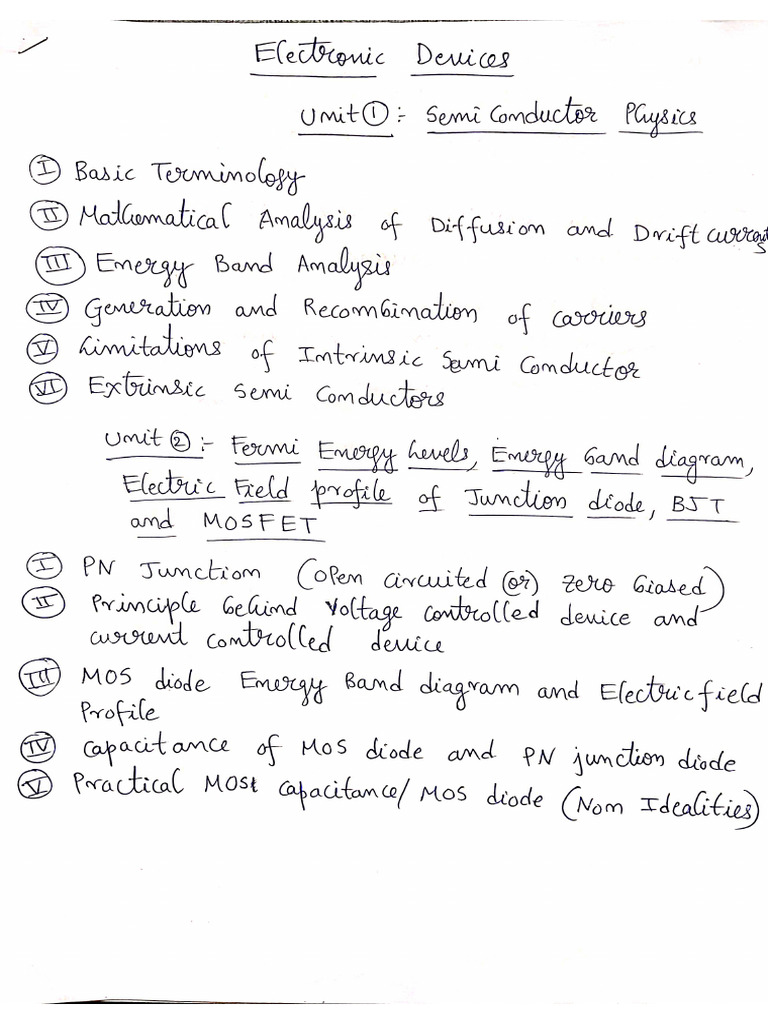 Electronic Devices
Unit ① :- Semi Conductor Physics
Ⓘ Basic Terminology
II Mathematical Analysis of Diffusion and Drift currents
III Energy Band Analysis
IV Generation and Recombination of carriers
V Limitations of Intrinsic Semi Conductor
VI Extrinsic Semi Conductors
Unit ② :- Fermi Energy Levels, Energy band diagram,
Electric Field profile of Junction diode, BJT
and MOSFET
I PN Junction (open circuited (or) zero biased)
II Principle behind Voltage controlled device and
current controlled device
III MOS diode Energy Band diagram and Electric field
Profile
IV Capacitance of MOS diode and PN junction diode
V Practical MOS capacitance/ MOS diode (Non Idealities)